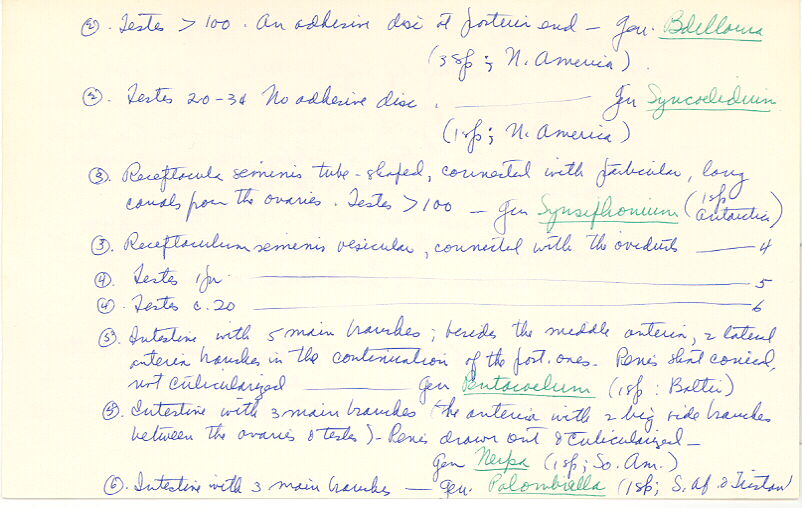 ②. Testes > 100. An adhesive disc at posterior end — gen. Bdelloura
(3 sp; N. America).
②. Testes 20-30 No adhesive disc. — gen Syncoelidium
(1 sp; N. America)
③. Receptacula seminis tube-shaped, connected with particular, long
canals from the ovaries. Testes > 100 — gen Synsiphonium (1 sp Antarctic)
③. Receptaculum seminis vesicular, connected with the oviducts — 4
④. Testes 1 pr. — 5
④. Testes c. 20 — 6
⑤. Intestine with 5 main branches; besides the middle anterior, 2 lateral
anterior branches in the continuation of the post. ones. Penis short conical,
not cuticularized — gen Pentacoelum (1 sp: Baltic)
⑤. Intestine with 3 main branches (the anterior with 2 big side branches
between the ovaries & testes) - Penis drawn out & cuticularized —
gen Nerpa (1 sp; So. Am.)
⑥. Intestine with 3 main branches — gen. Palombiella (1 sp; S. Af. & Tristan)